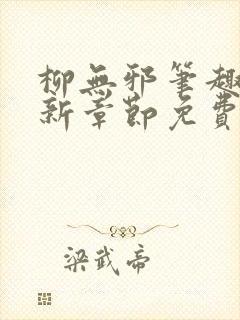 柳無邪筆趣
新章節免費
梁武帝